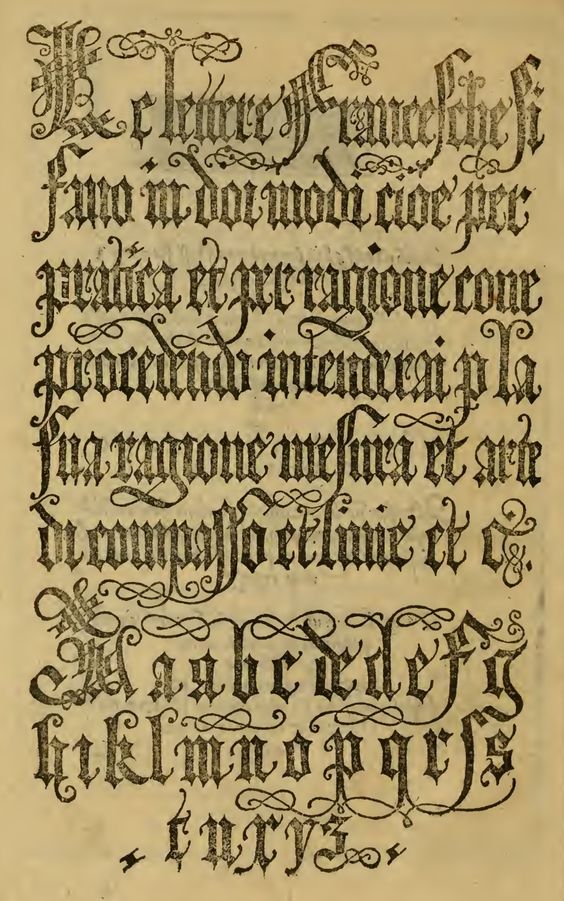 Le lettere Francesche si
fano in doi modi cioe per
pratica et per ragione cone
procedendo intenderai p la
sua ragione mesura et arte
di compasso et linie et cς.
A a a b c d e d e f g
h i k l m n o p q r ſ s
t u x y z